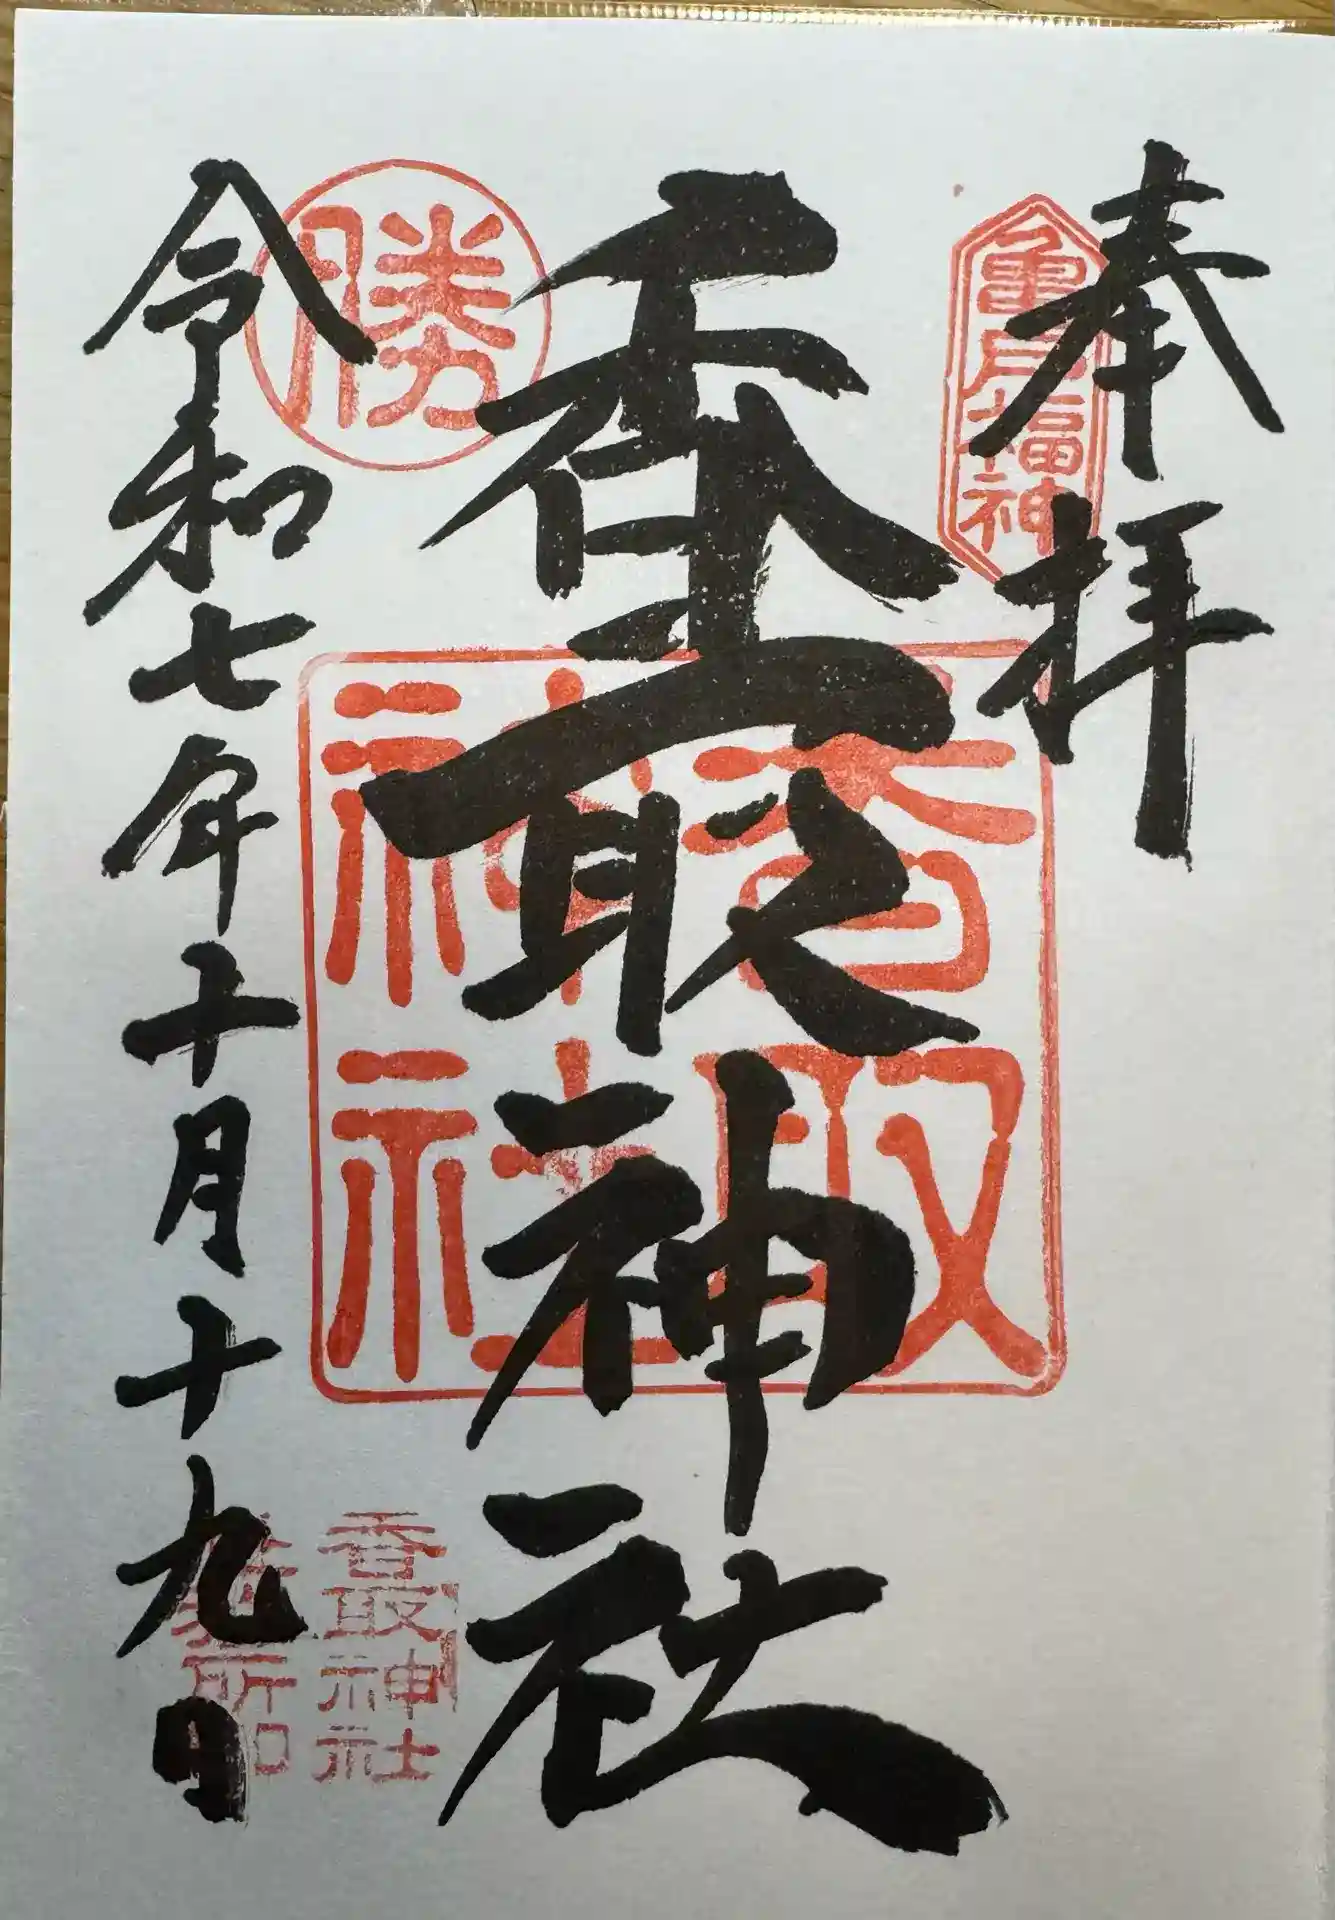 奉拝
亀戸福神
香取神社
香取神社
勝
令和七年十月十九日
香取神社
務所印